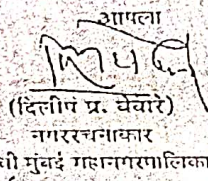 आपला
(दिलीप प्र. घेवारे)
नगररचनाकार
मुंबई महानगरपालिका